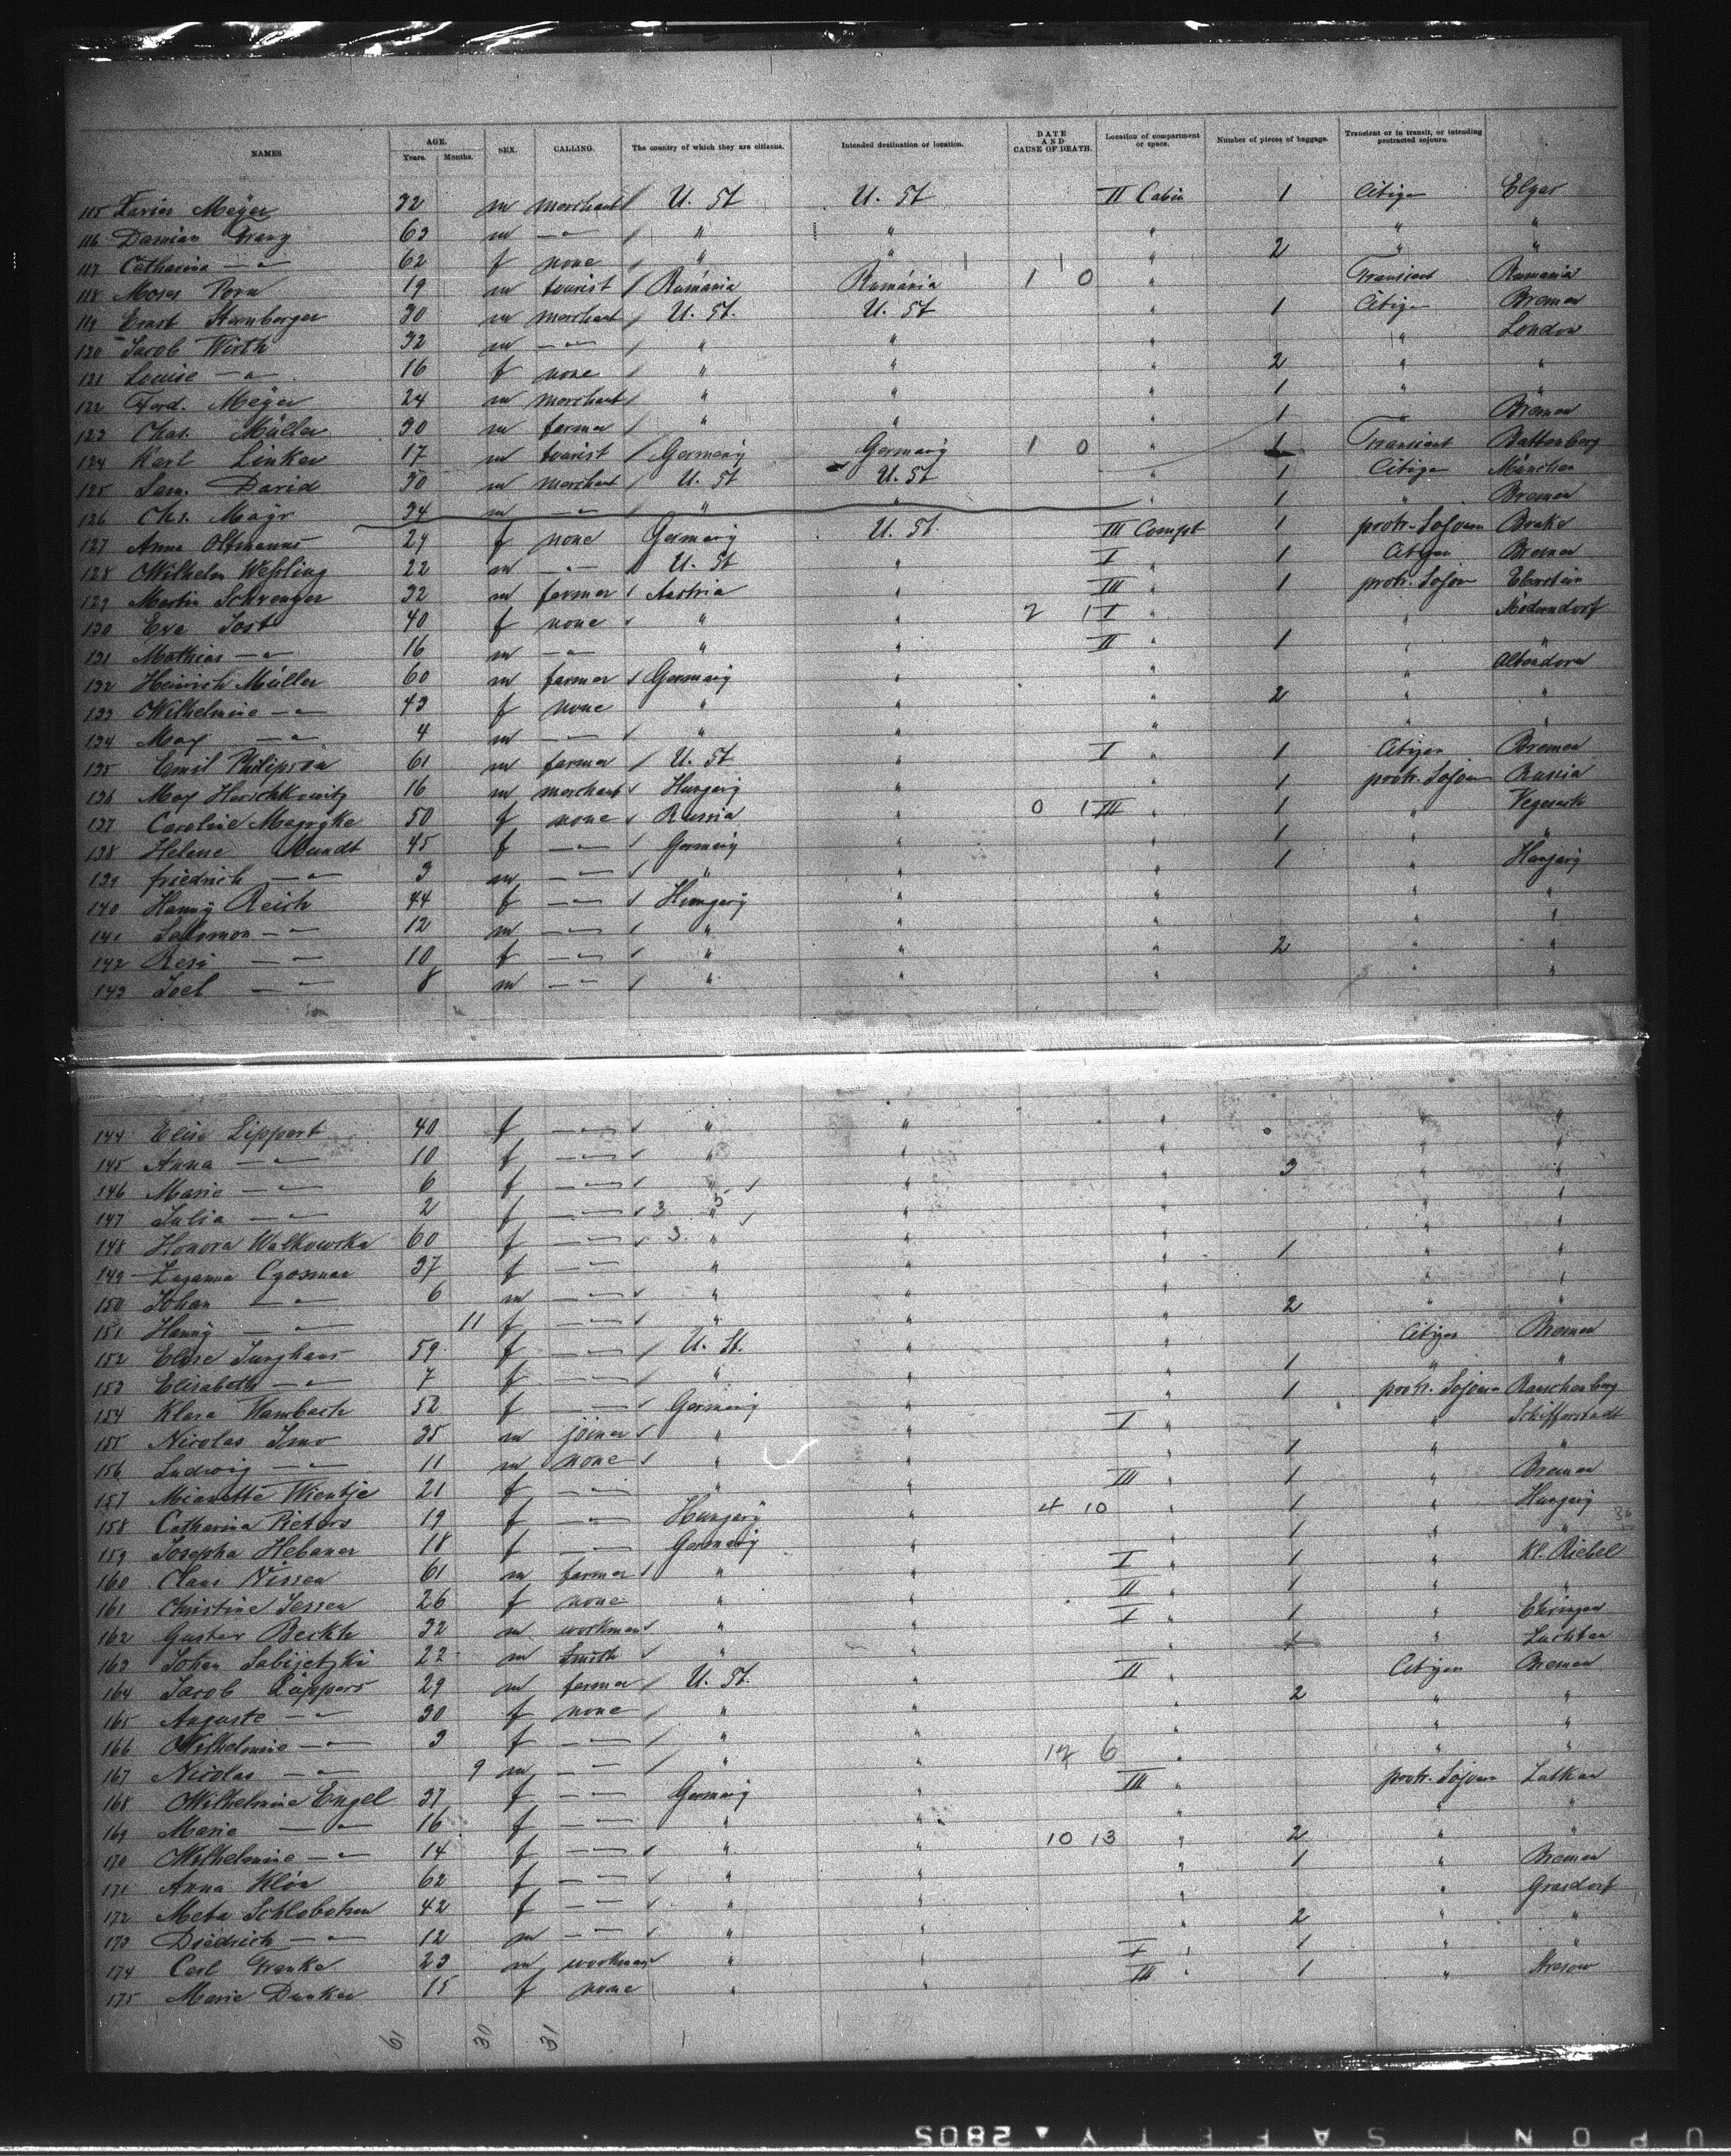 NAMES AGE. Years. Months. SEX. CALLING. The country of which they are citizens. Intended destination or location. DATE AND CAUSE OF DEATH. Location of compartment or space. Number of pieces of baggage. Transient or in transit, or intending protracted sojourn.
115 Xavier Meyer 32 m merchant U. St U. St II Cabin 1 Citizen
116 Damian 63 m — " — " " " " "
117 Catharina — " — 62 f none " " " 2 " "
118 Moses Porn 19 m tourist Rumania Rumania 1 0 " Transient Rumania
119 Ernst Sternberger 30 m merchant U. St. U. St " 1 Citizen Bremen
120 Jacob Wirth 32 m — " — " " " " London
121 Louise — " — 16 f none " " " 2 " "
122 Ferd. Meyer 24 m merchant " " " 1 " "
123 Chas. Müller 30 m farmer " " " 1 " Bremen
124 Karl Linker 17 m tourist Germany Germany 1 0 " 1 Transient Battenberg
125 Sam. David 30 m merchant U. St U. St " 1 Citizen München
126 Chs. Mayr 34 m — " — " " " 1 " Bremen
127 Anna Oltmanns 29 f none Germany U. St. III Compt 1 protr. Sojourn Brake
128 Wilhelm Weßling 22 m — " — U. St " I " 1 Citizen Bremen
129 Martin Schrenger 32 m farmer Austria " III " 1 protr. Sojour Eberstein
130 Eva Jost 40 f none " " 2 1 I " " Möderndorf
131 Mathias — " — 16 m — " — " " II " 1 " "
132 Heinrich Müller 60 m farmer Germany " " " Altendorn
133 Wilhelmine — " — 43 f none " " " 2 " "
134 Max — " — 4 m — " — " " " " "
135 Emil Philipson 61 m farmer U. St. " I " 1 Citizen Bremen
136 Max Herschkowitz 16 m merchant Hungary " " 1 protr. Sojour Russia
137 Caroline 50 f none Russia " 0 1 III " 1 " Vegesack
138 Helene Mundt 45 f — " — Germany " " 1 " "
139 friedrich — " — 3 m — " — " " " 1 " Hungary
140 Hanny Reich 44 f — " — Hungary " " " "
141 Salomon — " — 12 m — " — " " " " "
142 Resi — " — 10 f — " — " " " 2 " "
143 Joel — " — 8 m — " — " " " " "
144 Elise Lippert 40 f — " — " " " " "
145 Anna — " — 10 f — " — " " " " "
146 Marie — " — 6 f — " — " " " 3 " "
147 Julia — " — 2 f — " — 3 " 5 " " " "
148 Honora Walkowska 60 f — " — 3 " " " " "
149 37 f — " — " " " 1 " "
150 Johan — " — 6 m — " — " " " " "
151 Hanny — " — 11 f — " — " " " 2 " "
152 Elise Junghans 59 f — " — U. St. " " Citizen Bremen
153 Elisabeth — " — 7 f — " — " " " 1 " "
154 Klara Wambach 52 f — " — Germany " " 1 protr. Sojour Rauschenberg
155 Nicolas Imo 35 m joiner " " I " " Schifferstadt
156 Ludwig — " — 11 m none " " " 1 " "
157 Wientje 21 f — " — " " III " 1 " Bremen
158 Catharina Pieters 19 f — " — Hungary " 4 10 " 1 " Hungary
159 Josepha Hebaner 18 f — " — Germany " " 1 " "
160 Claus Nissen 61 m farmer " " I " 1 " Kl. Riebel
161 Christine Jessen 26 f none " " II " 1 " "
162 Gustav Berkh 32 m workman " " I " 1 " Ehringen
163 Johan 22 m Smith " " " 1 "
164 Jacob Küppers 29 m farmer U. St. " II " Citizen Bremen
165 Auguste — " — 30 f none " " " 2 " "
166 Wilhelmine — " — 3 f — " — " " " " "
167 Nicolas — " — 9 m — " — " " 12 6 " " "
168 Wilhelmine Engel 37 f — " — Germany " III " protr. Sojour
169 Marie — " — 16 f — " — " " " " "
170 Wilhelmine — " — 14 f — " — " " 10 13 " 2 " "
171 Anna 62 f — " — " " " 1 " Bremen
172 Meta Schlobohm 42 f — " — " " " " Grasdorf
173 Diedrich — " — 12 m — " — " " " 2 " "
174 Carl Franke 23 m workman " " I " 1 " "
175 Marie Dunker 15 f none " " III " 1 "
61 30 31
UPONT SAFETY ▲ 2805